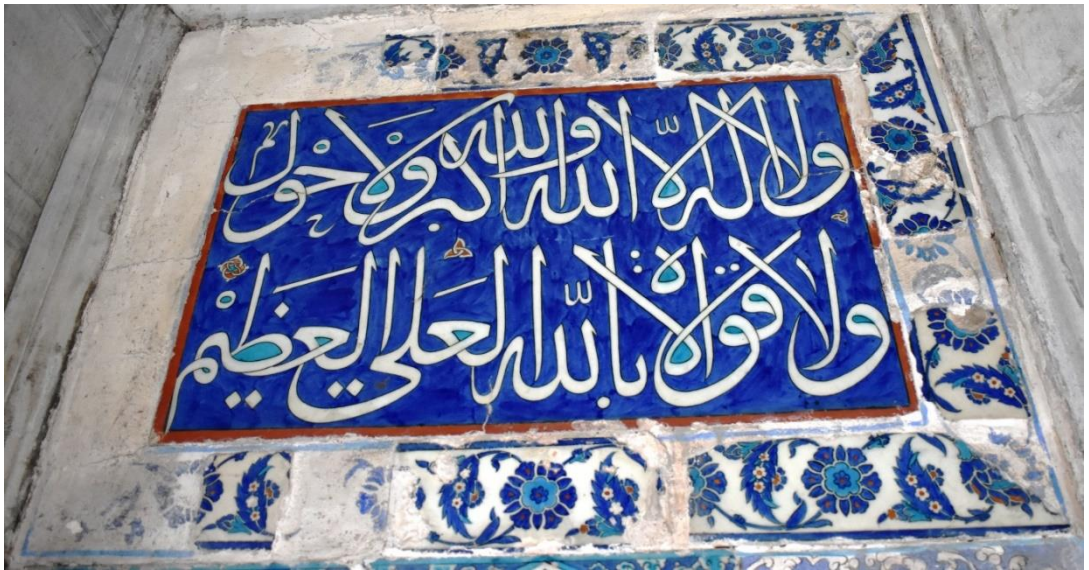 ولا اله الا الله والله اكبر ولا حول
ولا قوة الا بالله العلي العظيم